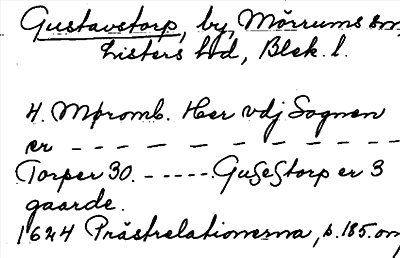 Gustavstorp, by, Mörrums sn,
Listers hd, Blek. l.
4. Møromb. Her vdj Sognen
er - - - - - - - - - -
Torper 30. - - - - - Gusestorp er 3
gaarde.
1624 Prästrelationerna, s. 185. om